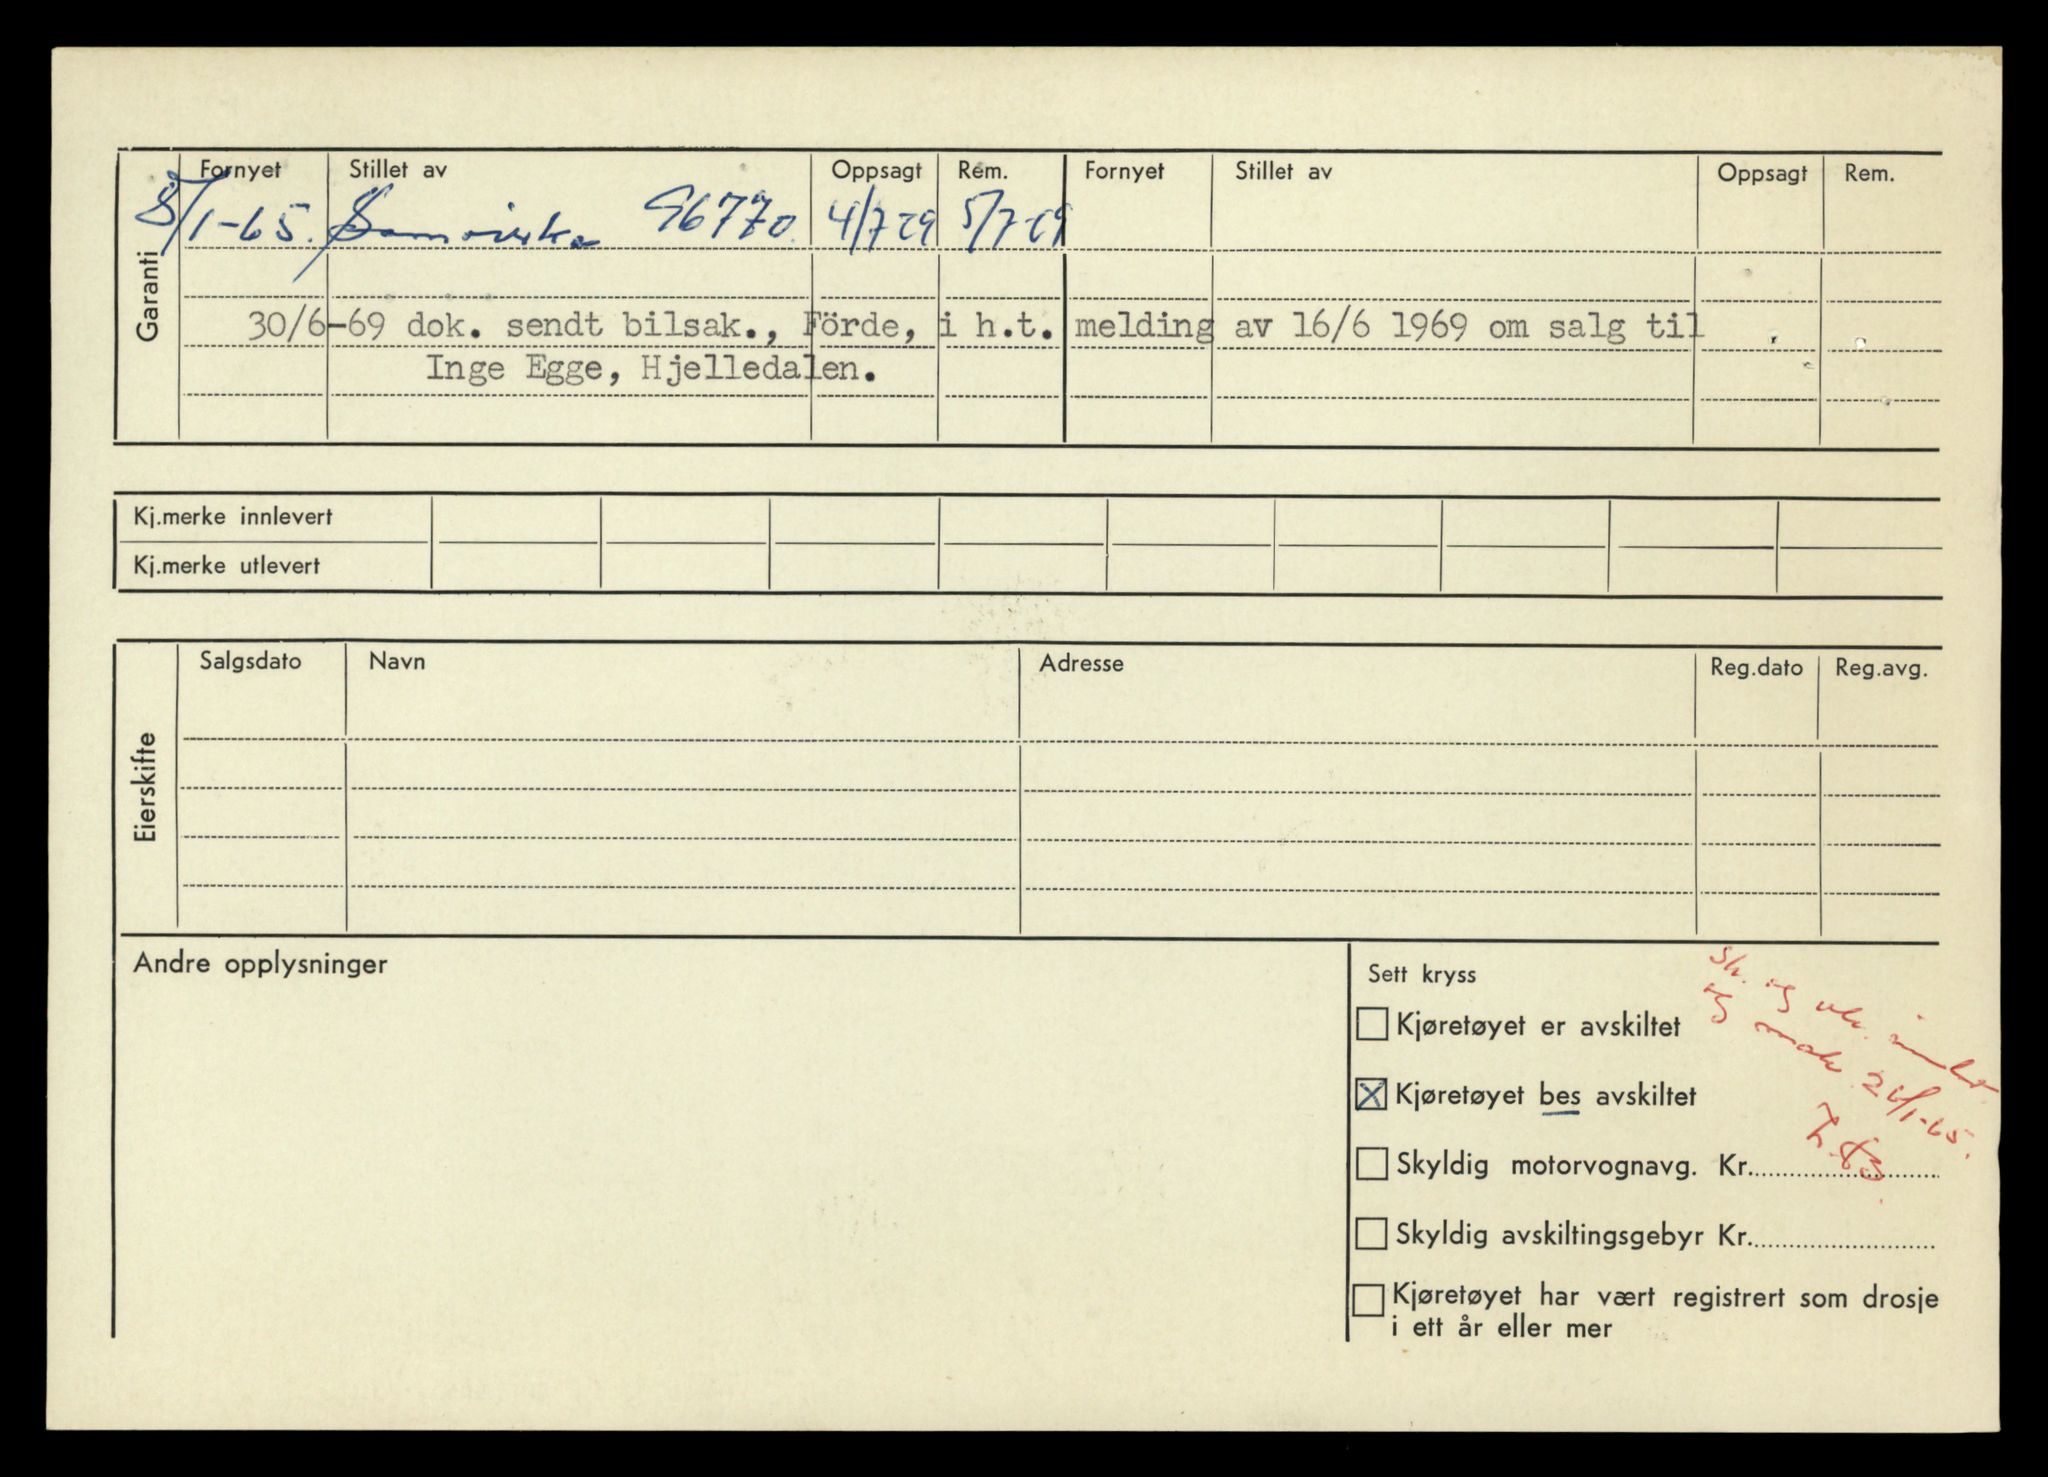 Garanti
Fornyet Stillet av Oppsagt Rem. Fornyet Stillet av Oppsagt Rem.
8/1-65. Samvirke 96770 4/7 69 5/7-69
30/6-69 dok. sendt bilsak., Förde, i h.t. melding av 16/6 1969 om salg til
Inge Egge, Hjelledalen.
Kj.merke innlevert
Kj.merke utlevert
Eierskifte
Salgsdato Navn Adresse Reg.dato Reg.avg.
Andre opplysninger
Sett kryss
Kjøretøyet er avskiltet
Kjøretøyet bes avskiltet
Skyldig motorvognavg. Kr.
Skyldig avskiltingsgebyr Kr.
Kjøretøyet har vært registrert som drosje
i ett år eller mer